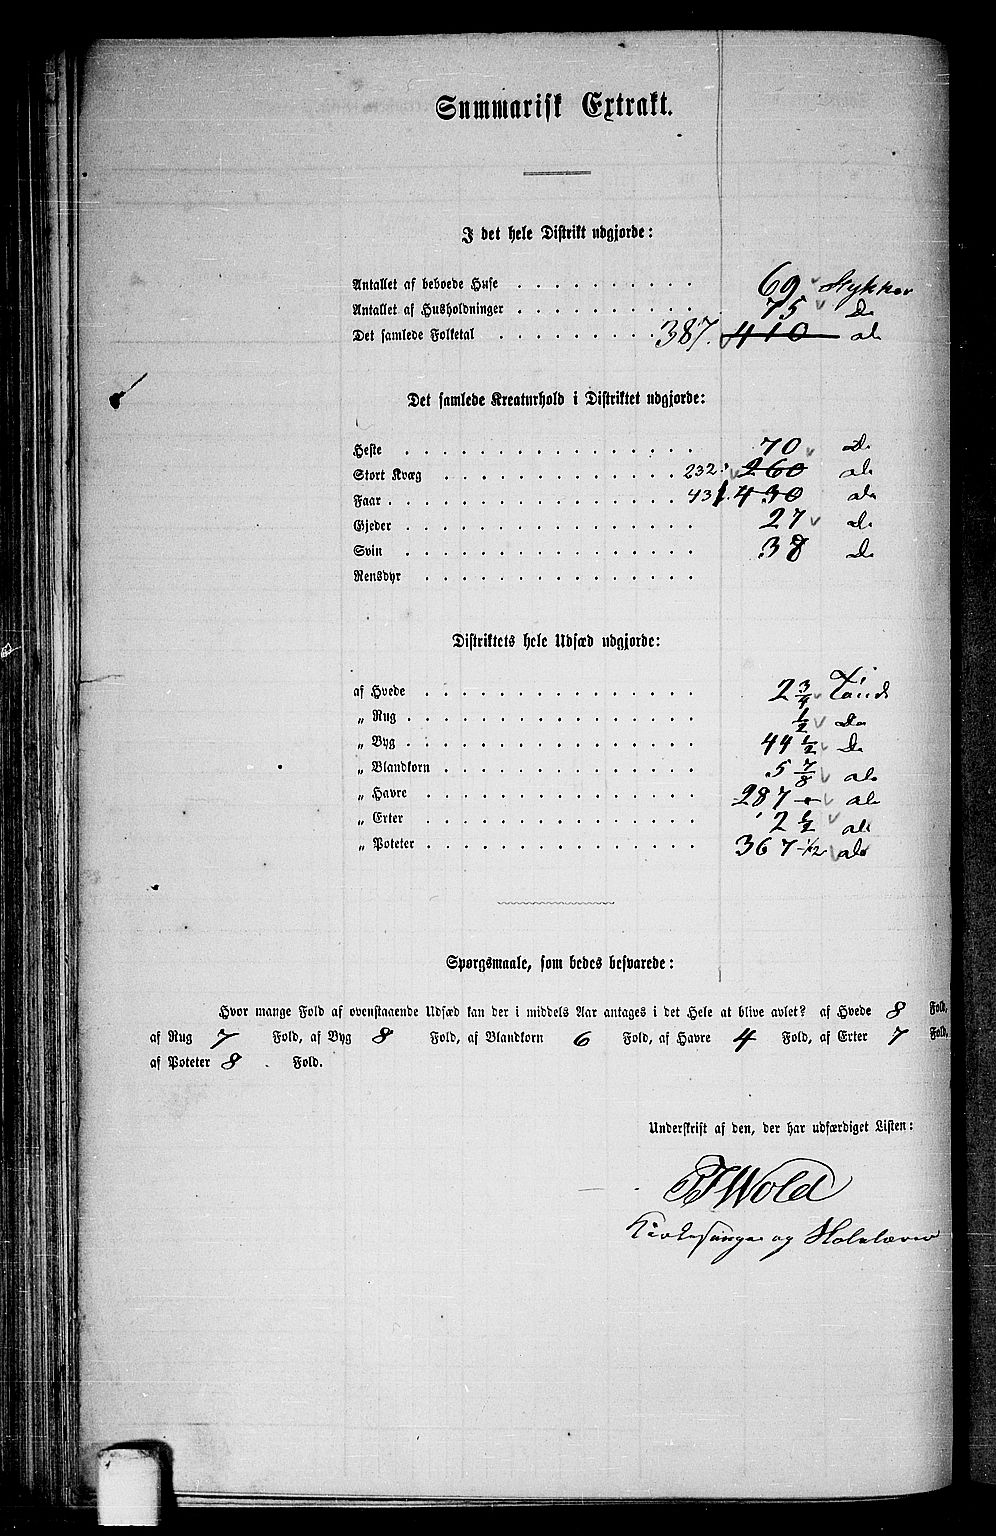 Summarisk Extrakt.
I det hele Distrikt udgjorde:
Antallet af beboede Huse . . . . . . . . . . 69 Stykker
Antallet af Husholdninger . . . . . . . . . . 75 Do
Det samlede Folketal . . . . . . . . . 387. 410 do
Det samlede Kreaturhold i Distriktet udgjorde:
Heste . . . . . . . . . . . . . . . . 70 Do
Stort Kvæg . . . . . . . . . . . . . . 232. 260 do
Faar . . . . . . . . . . . . . . . . 431. 430 do
Gjeder . . . . . . . . . . . . . . . . 27 do
Svin . . . . . . . . . . . . . . . . 38 Do
Rensdyr . . . . . . . . . . . . . . .
Distriktets hele Udsæd udgjorde:
af Hvede . . . . . . . . . . . . . . . 2 3/4 Tønde
„ Rug . . . . . . . . . . . . . . . . 1/2 Do
„ Byg . . . . . . . . . . . . . . . . 44 1/2 Do
„ Blandkorn . . . . . . . . . . . . . . 5 7/8 do
„ Havre . . . . . . . . . . . . . . . 287 - do
„ Erter . . . . . . . . . . . . . . . 2 1/2 do
„ Poteter . . . . . . . . . . . . . . . 367 1/2 do
Spørgsmaale, som bedes besvarede:
Hvor mange Fold af ovenstaaende Udsæd kan der i middels Aar antages i det Hele at blive avlet? af Hvede 8 Fold,
af Rug 7 Fold, af Byg 8 Fold, af Blandkorn 6 Fold, af Havre 4 Fold, af Erter 7 Fold,
af Poteter 8 . Fold.
Underskrift af den, der har udfærdiget Listen:
Wold
Kirkesanger og Skolelærer